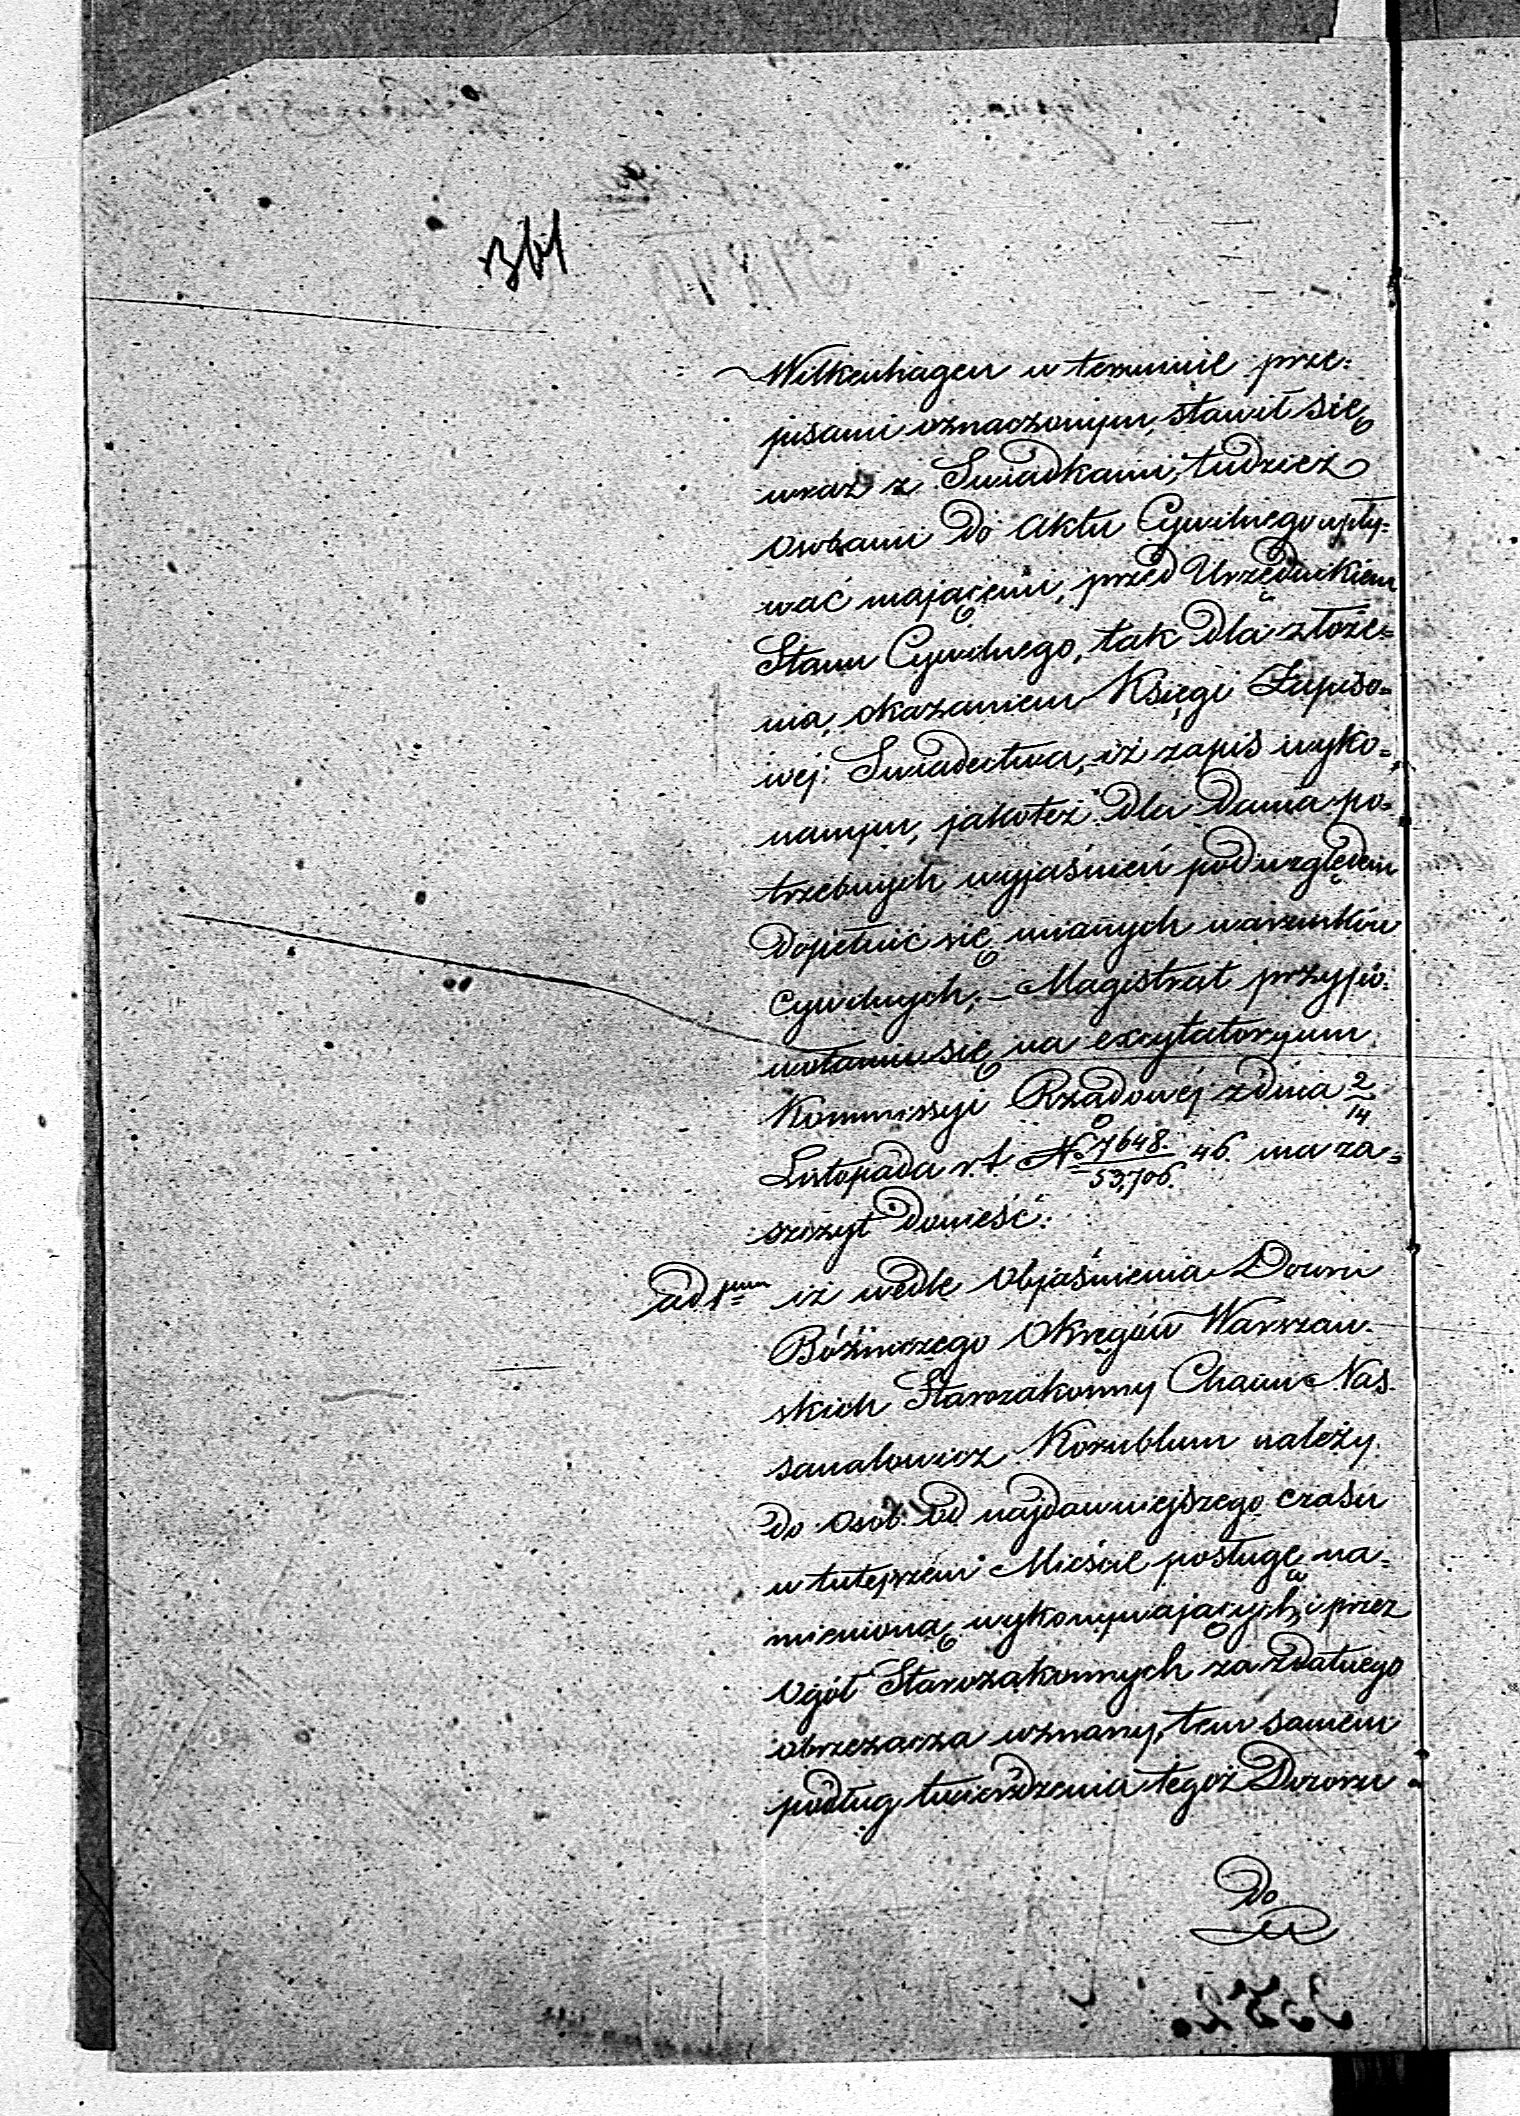 361
Wilkenhagen w terminie prze-
pisami oznaczonym, stawił się
wraz z Swiadkami, tudzież
osobami do aktu Cywilnego wpły-
wać mającemi, przed Urzędnikiem
Stanu Cywilnego, tak dla złoże-
nia, okazaniem Księgi Zapiso-
wej Swiadectwa, iż zapis wyko-
nanym, jakoteż dla dania po-
trzebnych wyjaśnień pod względem
dopełnić się mianych warunków
cywilnych; – Magistrat przypo-
wołaniu się na excytatoryum
Kommissyi Rządowéj z dnia 2/14
Listopada r.t. No 7648./53,706. 46. ma za-
szczyt donieść:
ad 1mum iż wedle Objaśnienia Dozoru
Bóżniczego Okręgów Warszaw-
skich Starozakonny Chaim Nas-
sanalowicz Kornblum należy
do osób od najdawniejszego czasu
w tutejszem Mieście posługę na-
mienioną wykonywających, i przez
Ogół Starozakonnych za zdatnego
obrzezacza uznany, tem samem
podług twierdzenia tegoż Dozoru
Do